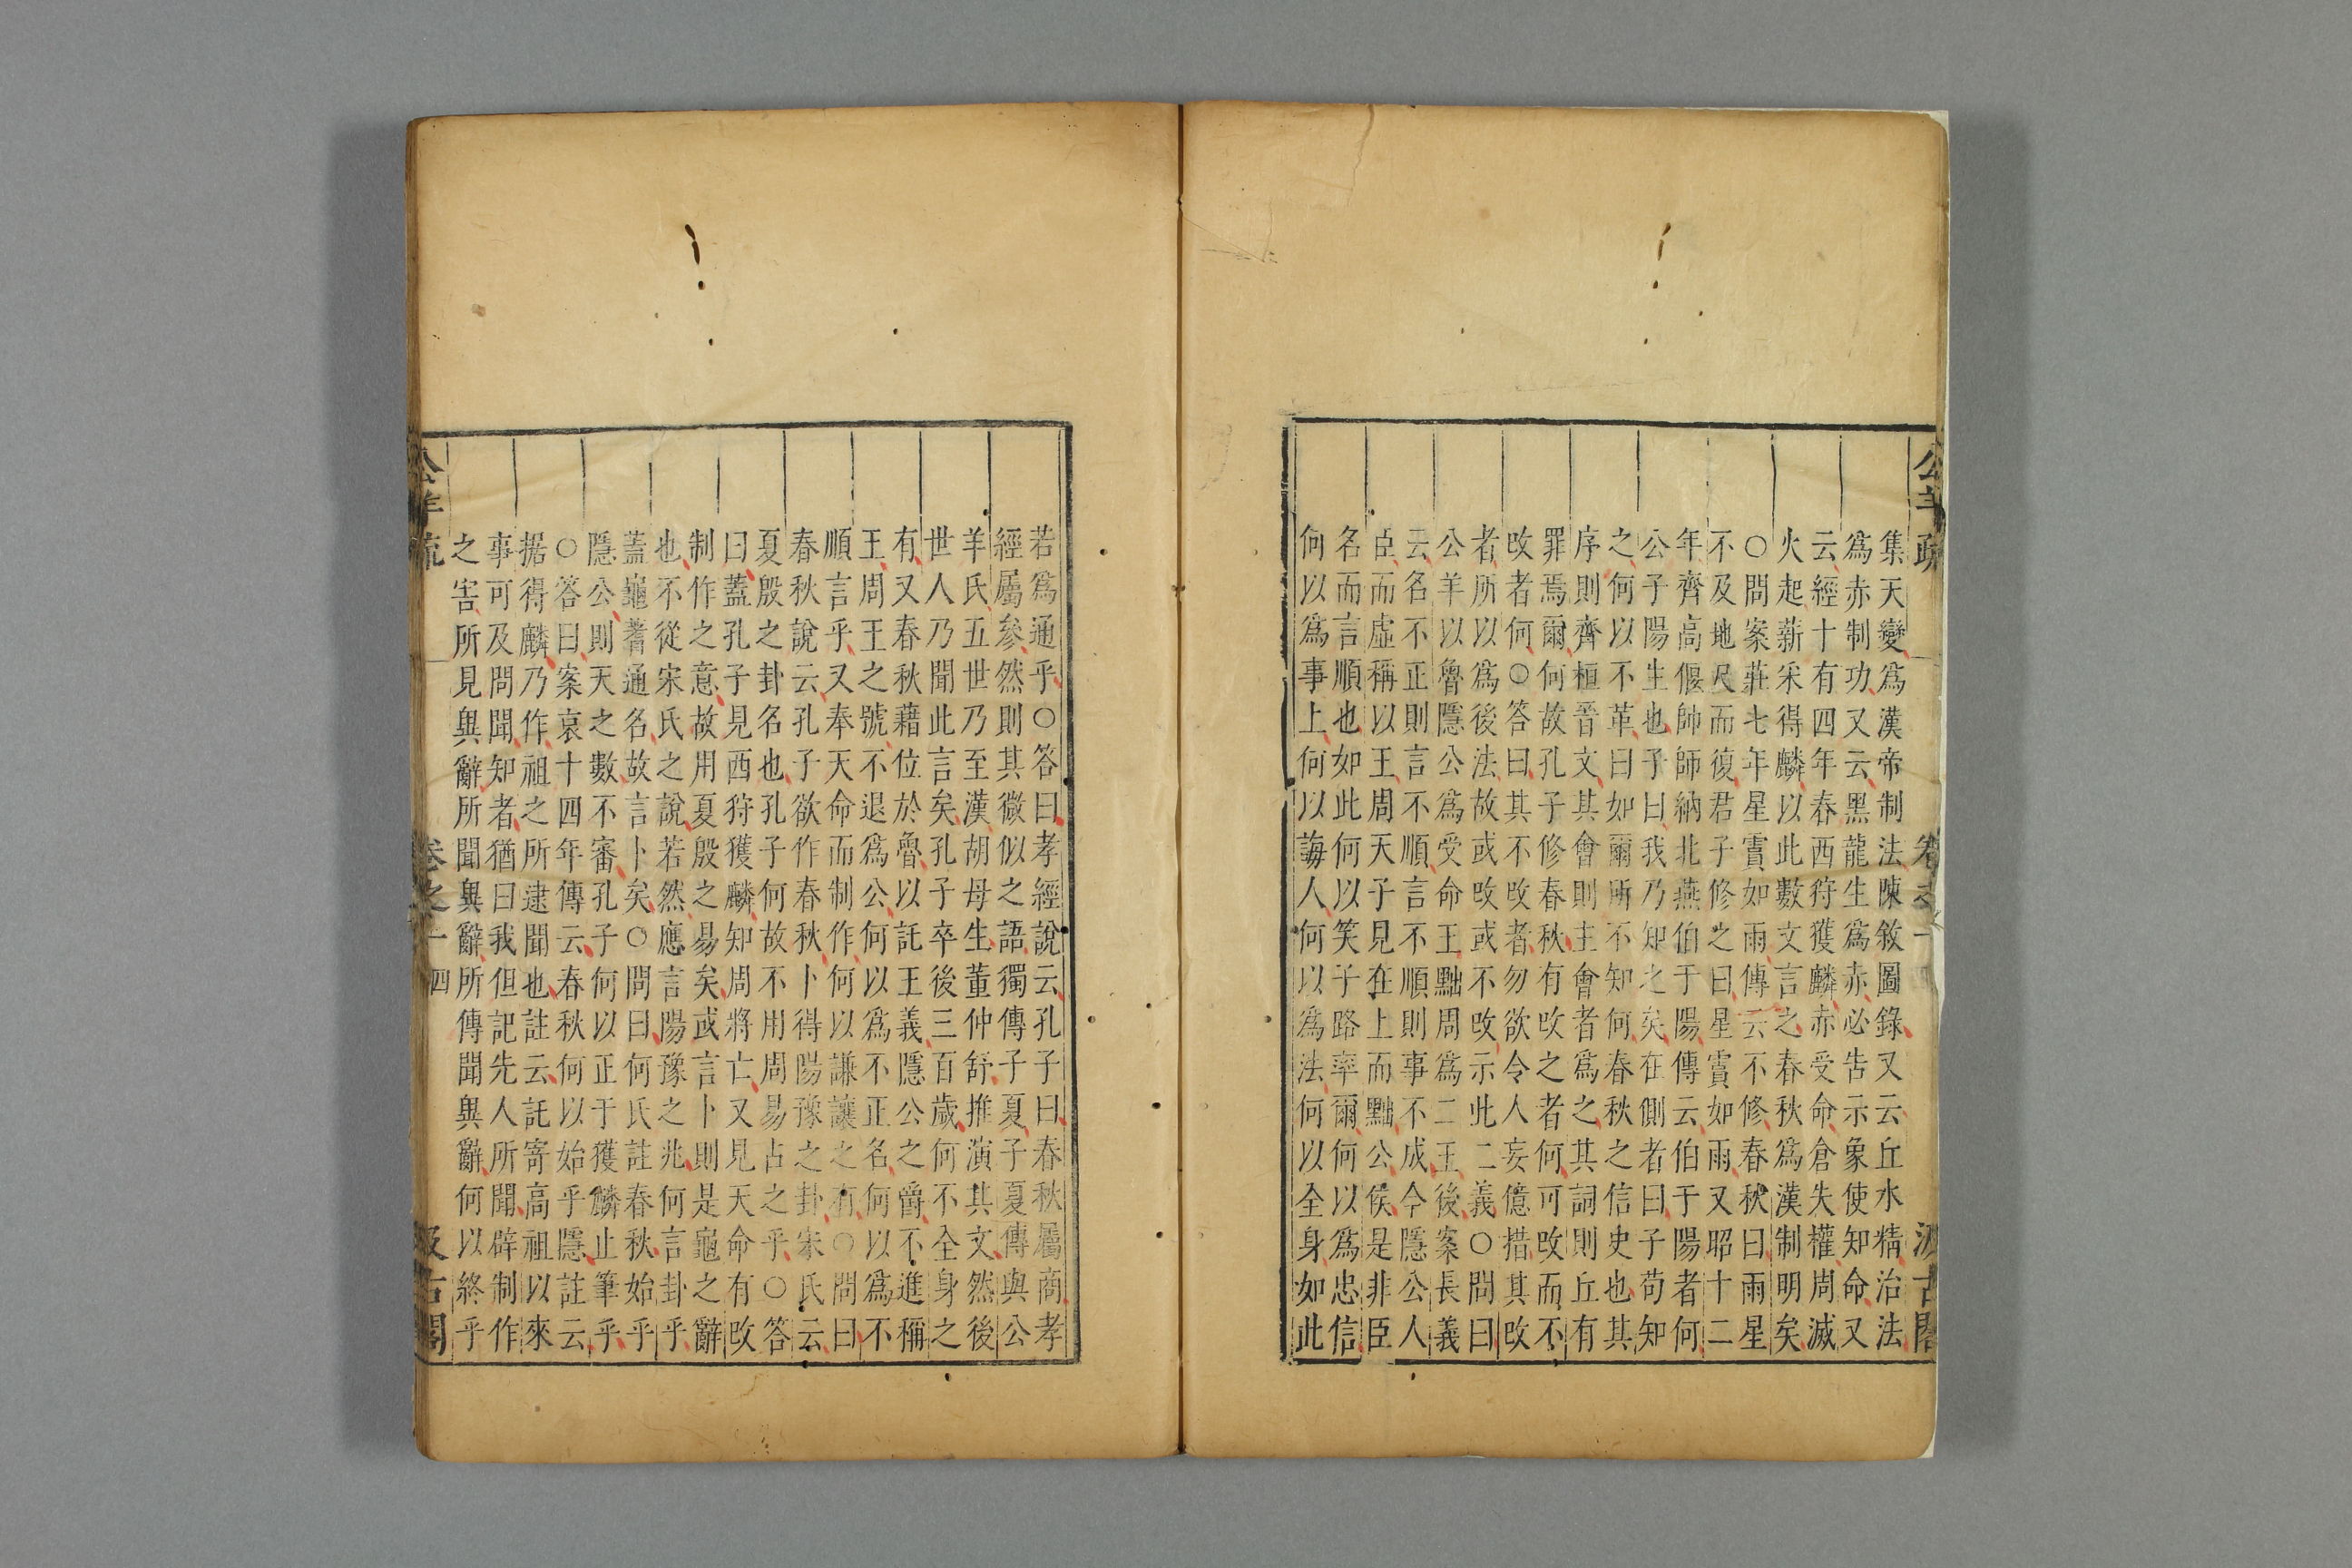 公羊疏 卷之一 汲古閣
集天變爲漢帝制法陳敘圖錄又云丘水精治法
爲赤制功又云黑龍生爲赤必告示象使知命又
云經十有四年春西狩獲麟赤受命倉失權周滅
火起薪采得麟以此數文言之春秋爲漢制明矣
○問案莊七年星霣如雨傳云不修春秋曰雨星
不及地尺而復君子修之曰星霣如雨又昭十二
年齊高偃帥師納北燕伯于陽傳云伯于陽者何
公子陽生也子曰我乃知之矣在側者曰子苟知
之何以不革曰如爾所不知何春秋之信史也其
序則齊桓晉文其會則主會者爲之其詞則丘有
罪焉爾何故孔子修春秋有改之者何可改而不
改者何○答曰其不改者勿欲令人妄億措其改
者所以爲後法故或改或不改示此二義○問曰
公羊以魯隱公爲受命王黜周爲二王後案長義
云名不正則言不順言不順則事不成今隱公人
臣而虛稱以王周天子見在上而黜公侯是非臣
名而言順也如此何以笑子路率爾何以爲忠信
何以爲事上何以誨人何以爲法何以全身如此
若爲通乎○答曰孝經說云孔子曰春秋屬商孝
經屬參然則其微似之語獨傳子夏子夏傳與公
羊氏五世乃至漢胡母生董仲舒推演其文然後
世人乃聞此言矣孔子卒後三百歲何不全身之
有又春秋藉位於魯以託王義隱公之爵不進稱
王周王之號不退爲公何以爲不正名何以爲不
順言乎又奉天命而制作何以謙讓之有○問曰
春秋說云孔子欲作春秋卜得陽豫之卦宋氏云
夏殷之卦名也孔子何故不用周易占之乎○答
曰蓋孔子見西狩獲麟知周將亡又見天命有改
制作之意故用夏殷之易矣或言卜則是龜之辭
也不從宋氏之說若然應言陽豫之兆何言卦乎
蓋龜蓍通名故言卜矣○問曰何氏註春秋始乎
隱公則天之數不審孔子何以正于獲麟止筆乎
○答曰案哀十四年傳云春秋何以始乎隱註云
据得麟乃作祖之所逮聞也註云託寄高祖以來
事可及問聞知者猶曰我但記先人所聞辟制作
之害所見與辭所聞與辭所傳聞與辭何以終乎
公羊疏 卷之一 四 汲古閣